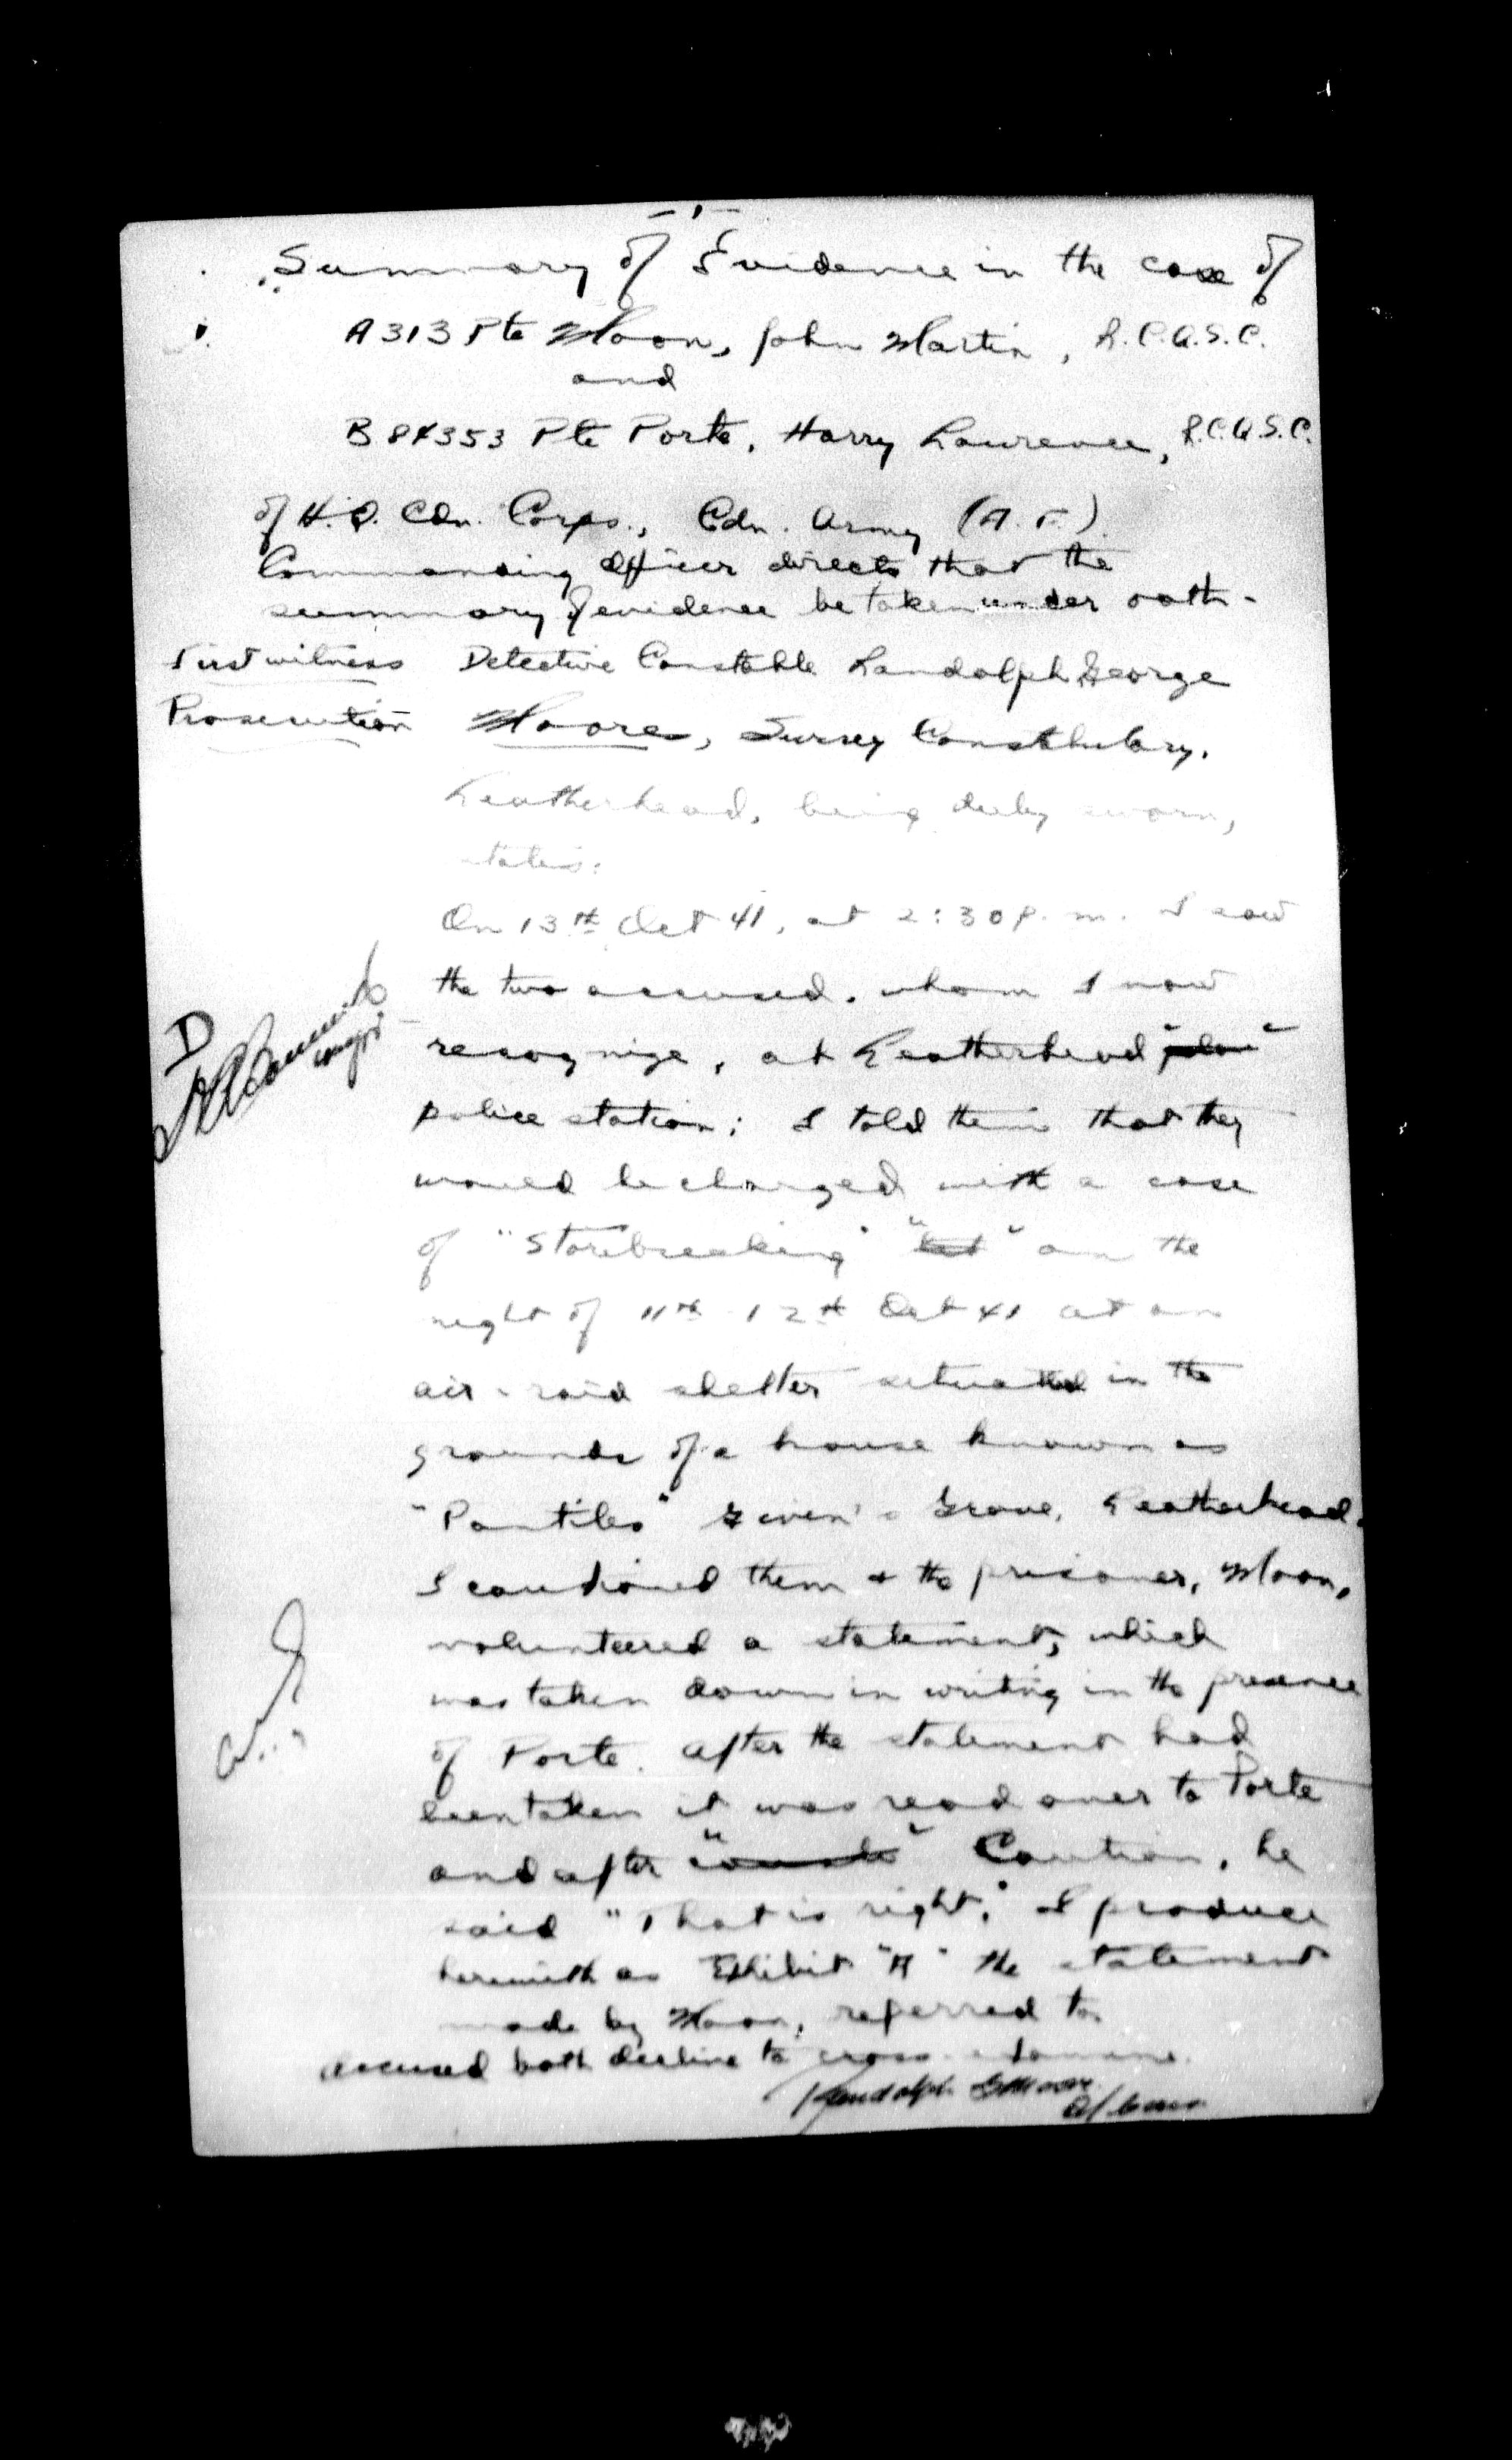 -1-
Summary of Evidence in the case of
A313 Pte Moon, John Martin, R.C.A.S.C.
and
B84353 Pte Porte, Harry Laurence, R.C.A.S.C.
of H.Q. Cdn. Corps., Cdn. Army (A.F.).
Commanding Officer directs that the
summary of evidence be taken under oath -
First witness Detective Constable Randolph George
Prosecution Moore, Surrey Constabulary,
Leatherhead, being duly sworn,
states:
On 13th Oct 41, at 2:30 p.m. I saw
the two accused, whom I now
recognize, at Leatherhead
police station; I told them that they
would be charged with a case
of "Storebreaking" on the
night of 11th 12th Oct 41 at an
air-raid shelter situated in the
grounds of a house known as
"Pantiles" Given's Grove, Leatherhead.
I cautioned them & the prisoner, Moon,
volunteered a statement, which
was taken down in writing in the presence
of Porte. After the statement had
been taken it was read over to Porte
and after Caution, he
said "That is right." I produce
herewith as Exhibit "A" the statement
made by Moon, referred to.
Accused both decline to cross-examine.
Randolph G Moore
D/Cons.